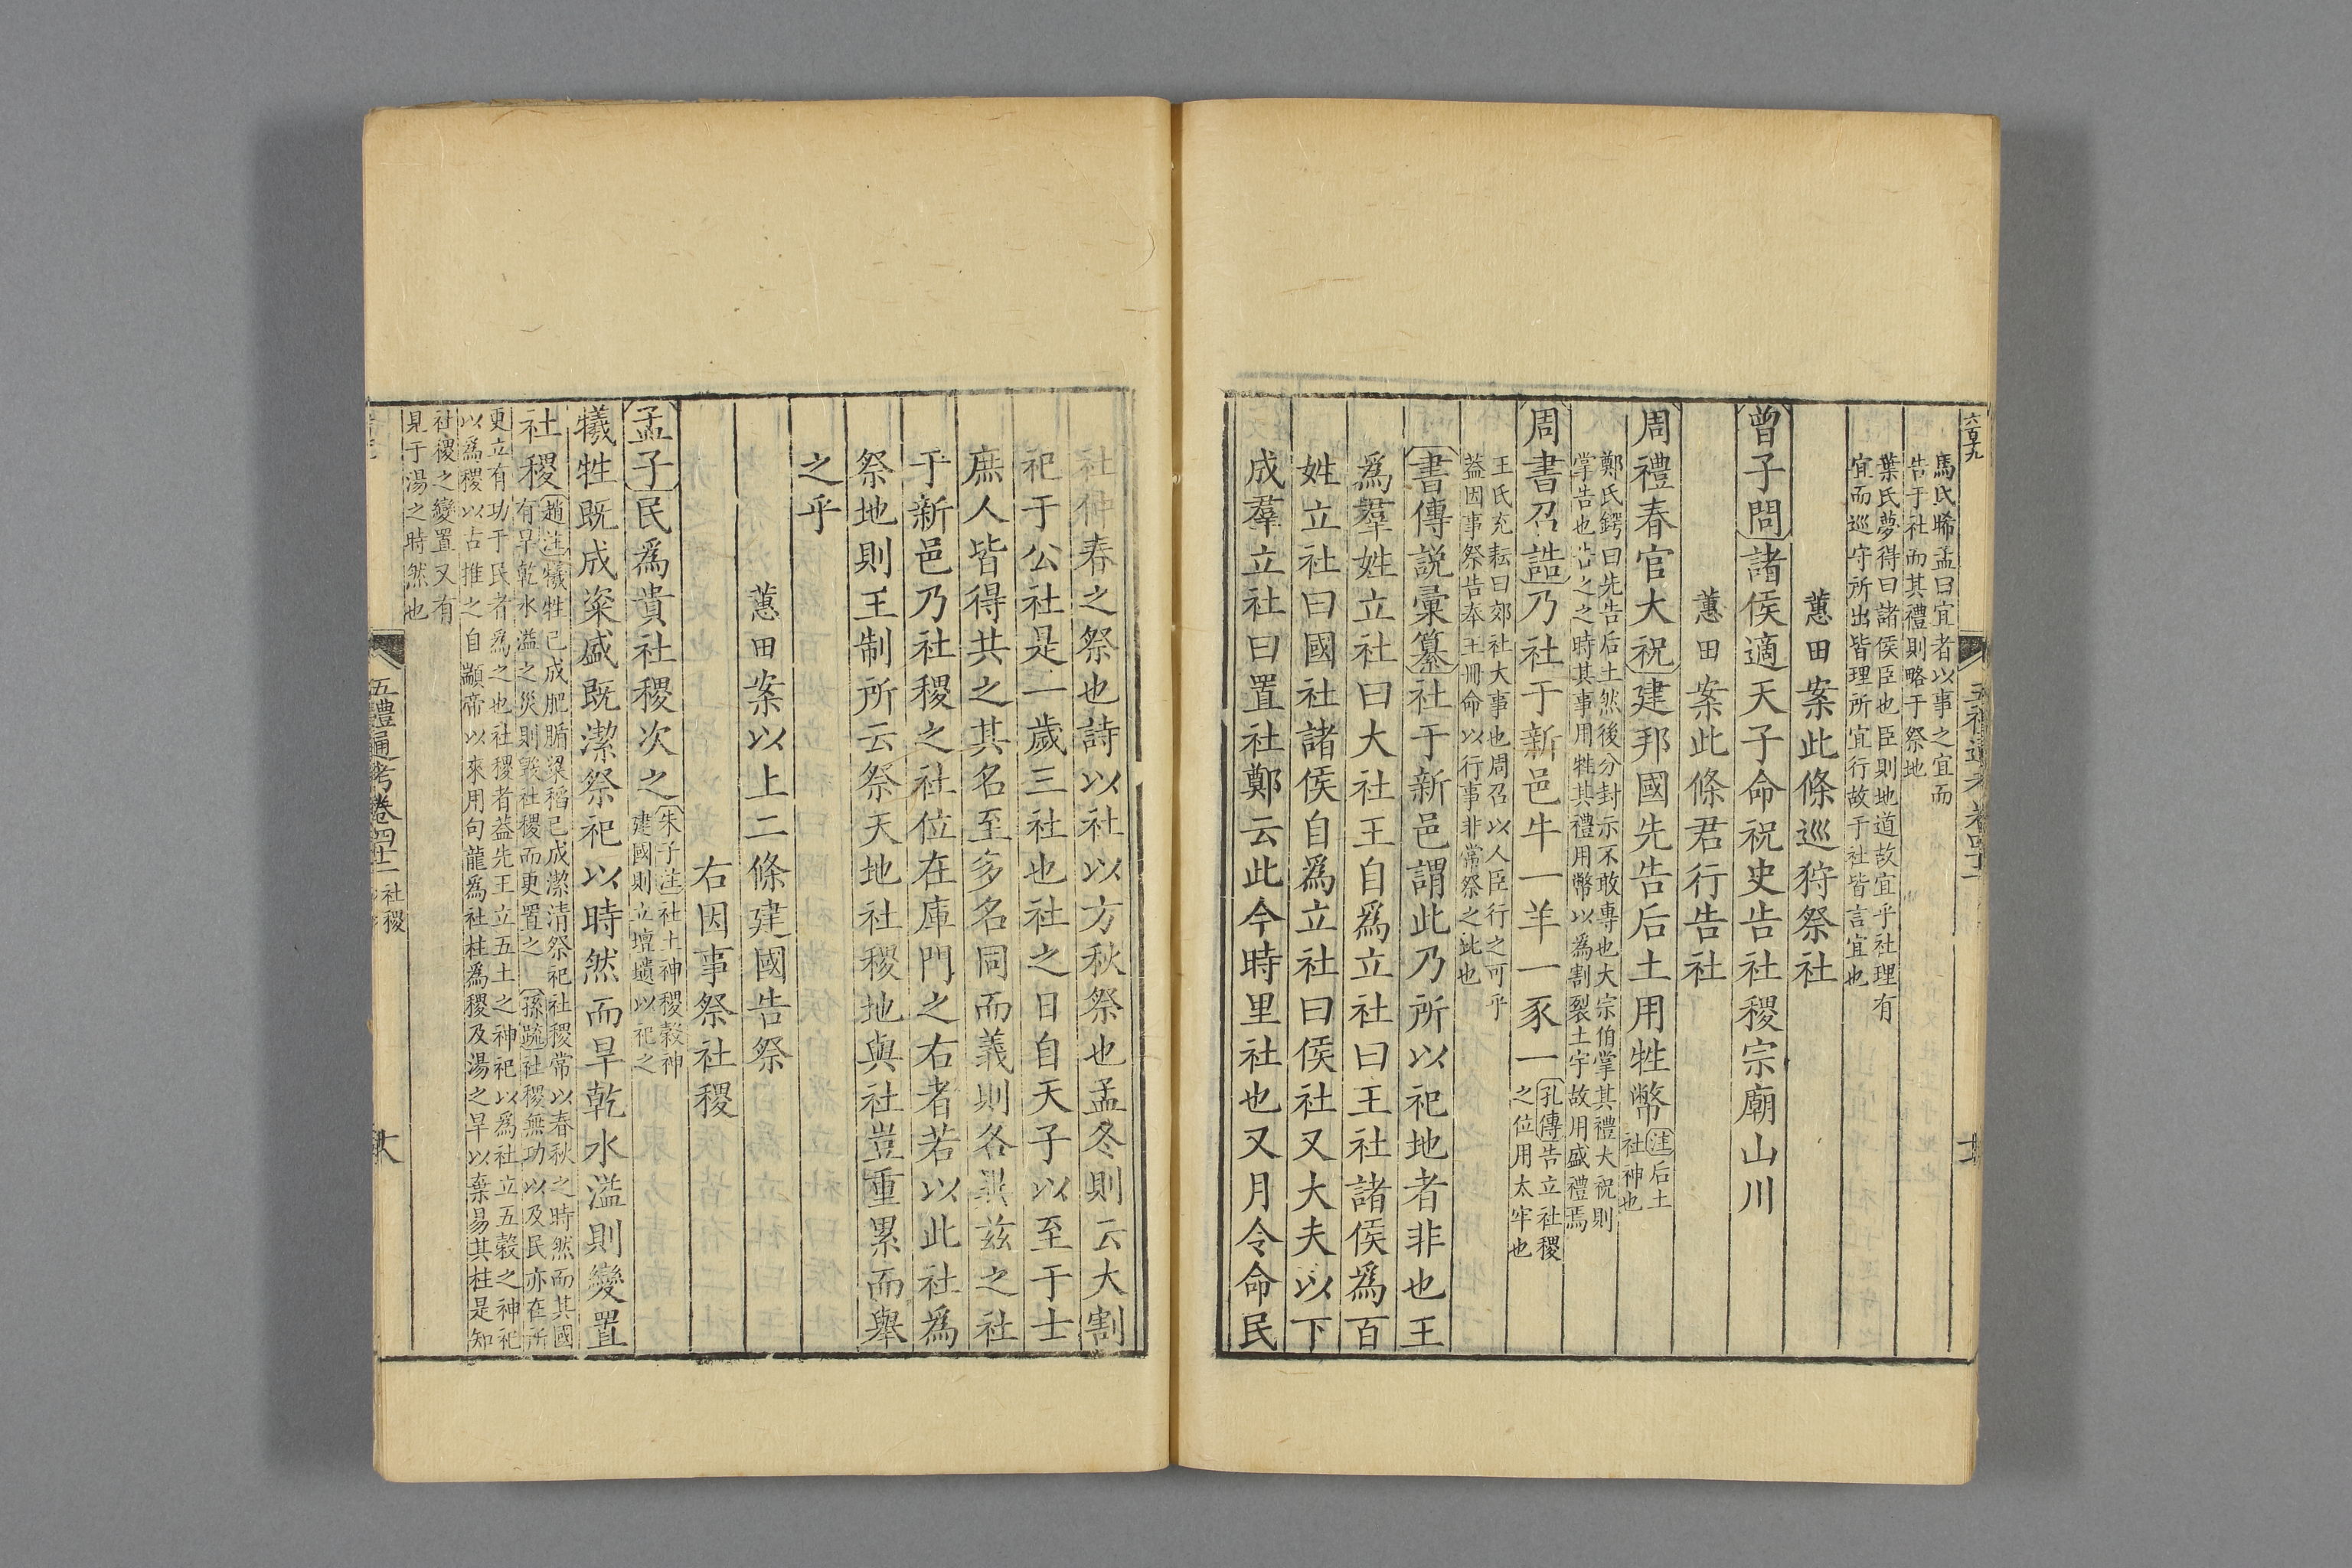 六百九
五禮通考卷四十二
馬氏晞孟曰宜者以事之宜而
告于社而其禮則略于祭地
葉氏夢得曰諸侯臣也臣則地道故宜乎社理有
宜而巡守所出皆理所宜行故于社皆言宜也
蕙田案此條巡狩祭社
曾子問諸侯適天子命祝史告社稷宗廟山川
蕙田案此條君行告社
周禮春官大祝建邦國先告后土用牲幣注后土
社神也
鄭氏鍔曰先告后土然後分封示不敢專也大宗伯掌其禮大祝則
掌告也告之之時其事用牲其禮用幣以為割裂土宇故用盛禮焉
周書召誥乃社于新邑牛一羊一豕一孔傳告立社稷
之位用太牢也
王氏充耘曰郊社大事也周召以人臣行之可乎
益因事祭告奉王冊命以行事非常祭之比也
書傳説彚纂社于新邑謂此乃所以祀地者非也王
爲羣姓立社曰大社王自爲立社曰王社諸侯爲百
姓立社曰國社諸侯自爲立社曰侯社又大夫以下
成羣立社曰置社鄭云此今時里社也又月令命民
社仲春之祭也詩以社以方秋祭也孟冬則云大割
祀于公社是一歲三社也社之日自天子以至于士
庶人皆得共之其名至多名同而義則各異兹之社
于新邑乃社稷之社位在庫門之右者若以此社爲
祭地則王制所云祭天地社稷地與社豈重累而舉
之乎
蕙田案以上二條建國告祭
右因事祭社稷
孟子民爲貴社稷次之朱子注社土神稷穀神
建國則立壇壝以祀之
犧牲既成粢盛既潔祭祀以時然而旱乾水溢則變置
社稷趙注犧牲已成肥腯粱稻已成潔清祭祀社稷常以春秋之時然而其國
有旱乾水溢之災則毀社稷而更置之 孫疏社稷無功以及民亦在所
更立有功于民者爲之也社稷者益先王立五土之神祀以爲社立五穀之神祀
以爲稷以古推之自顓帝以來用句龍爲社柱爲稷及湯之旱以棄易其柱是知
社稷之變置又有
見于湯之時然也
五禮通考卷四十二 社稷